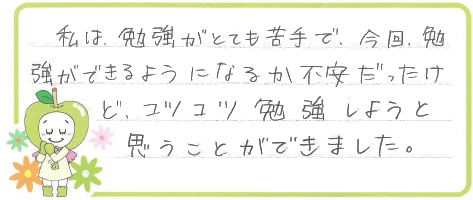 私は、勉強がとても苦手で、今回、勉
強ができるようになるか不安だったけ
ど、コツコツ勉強しようと
思うことができました。